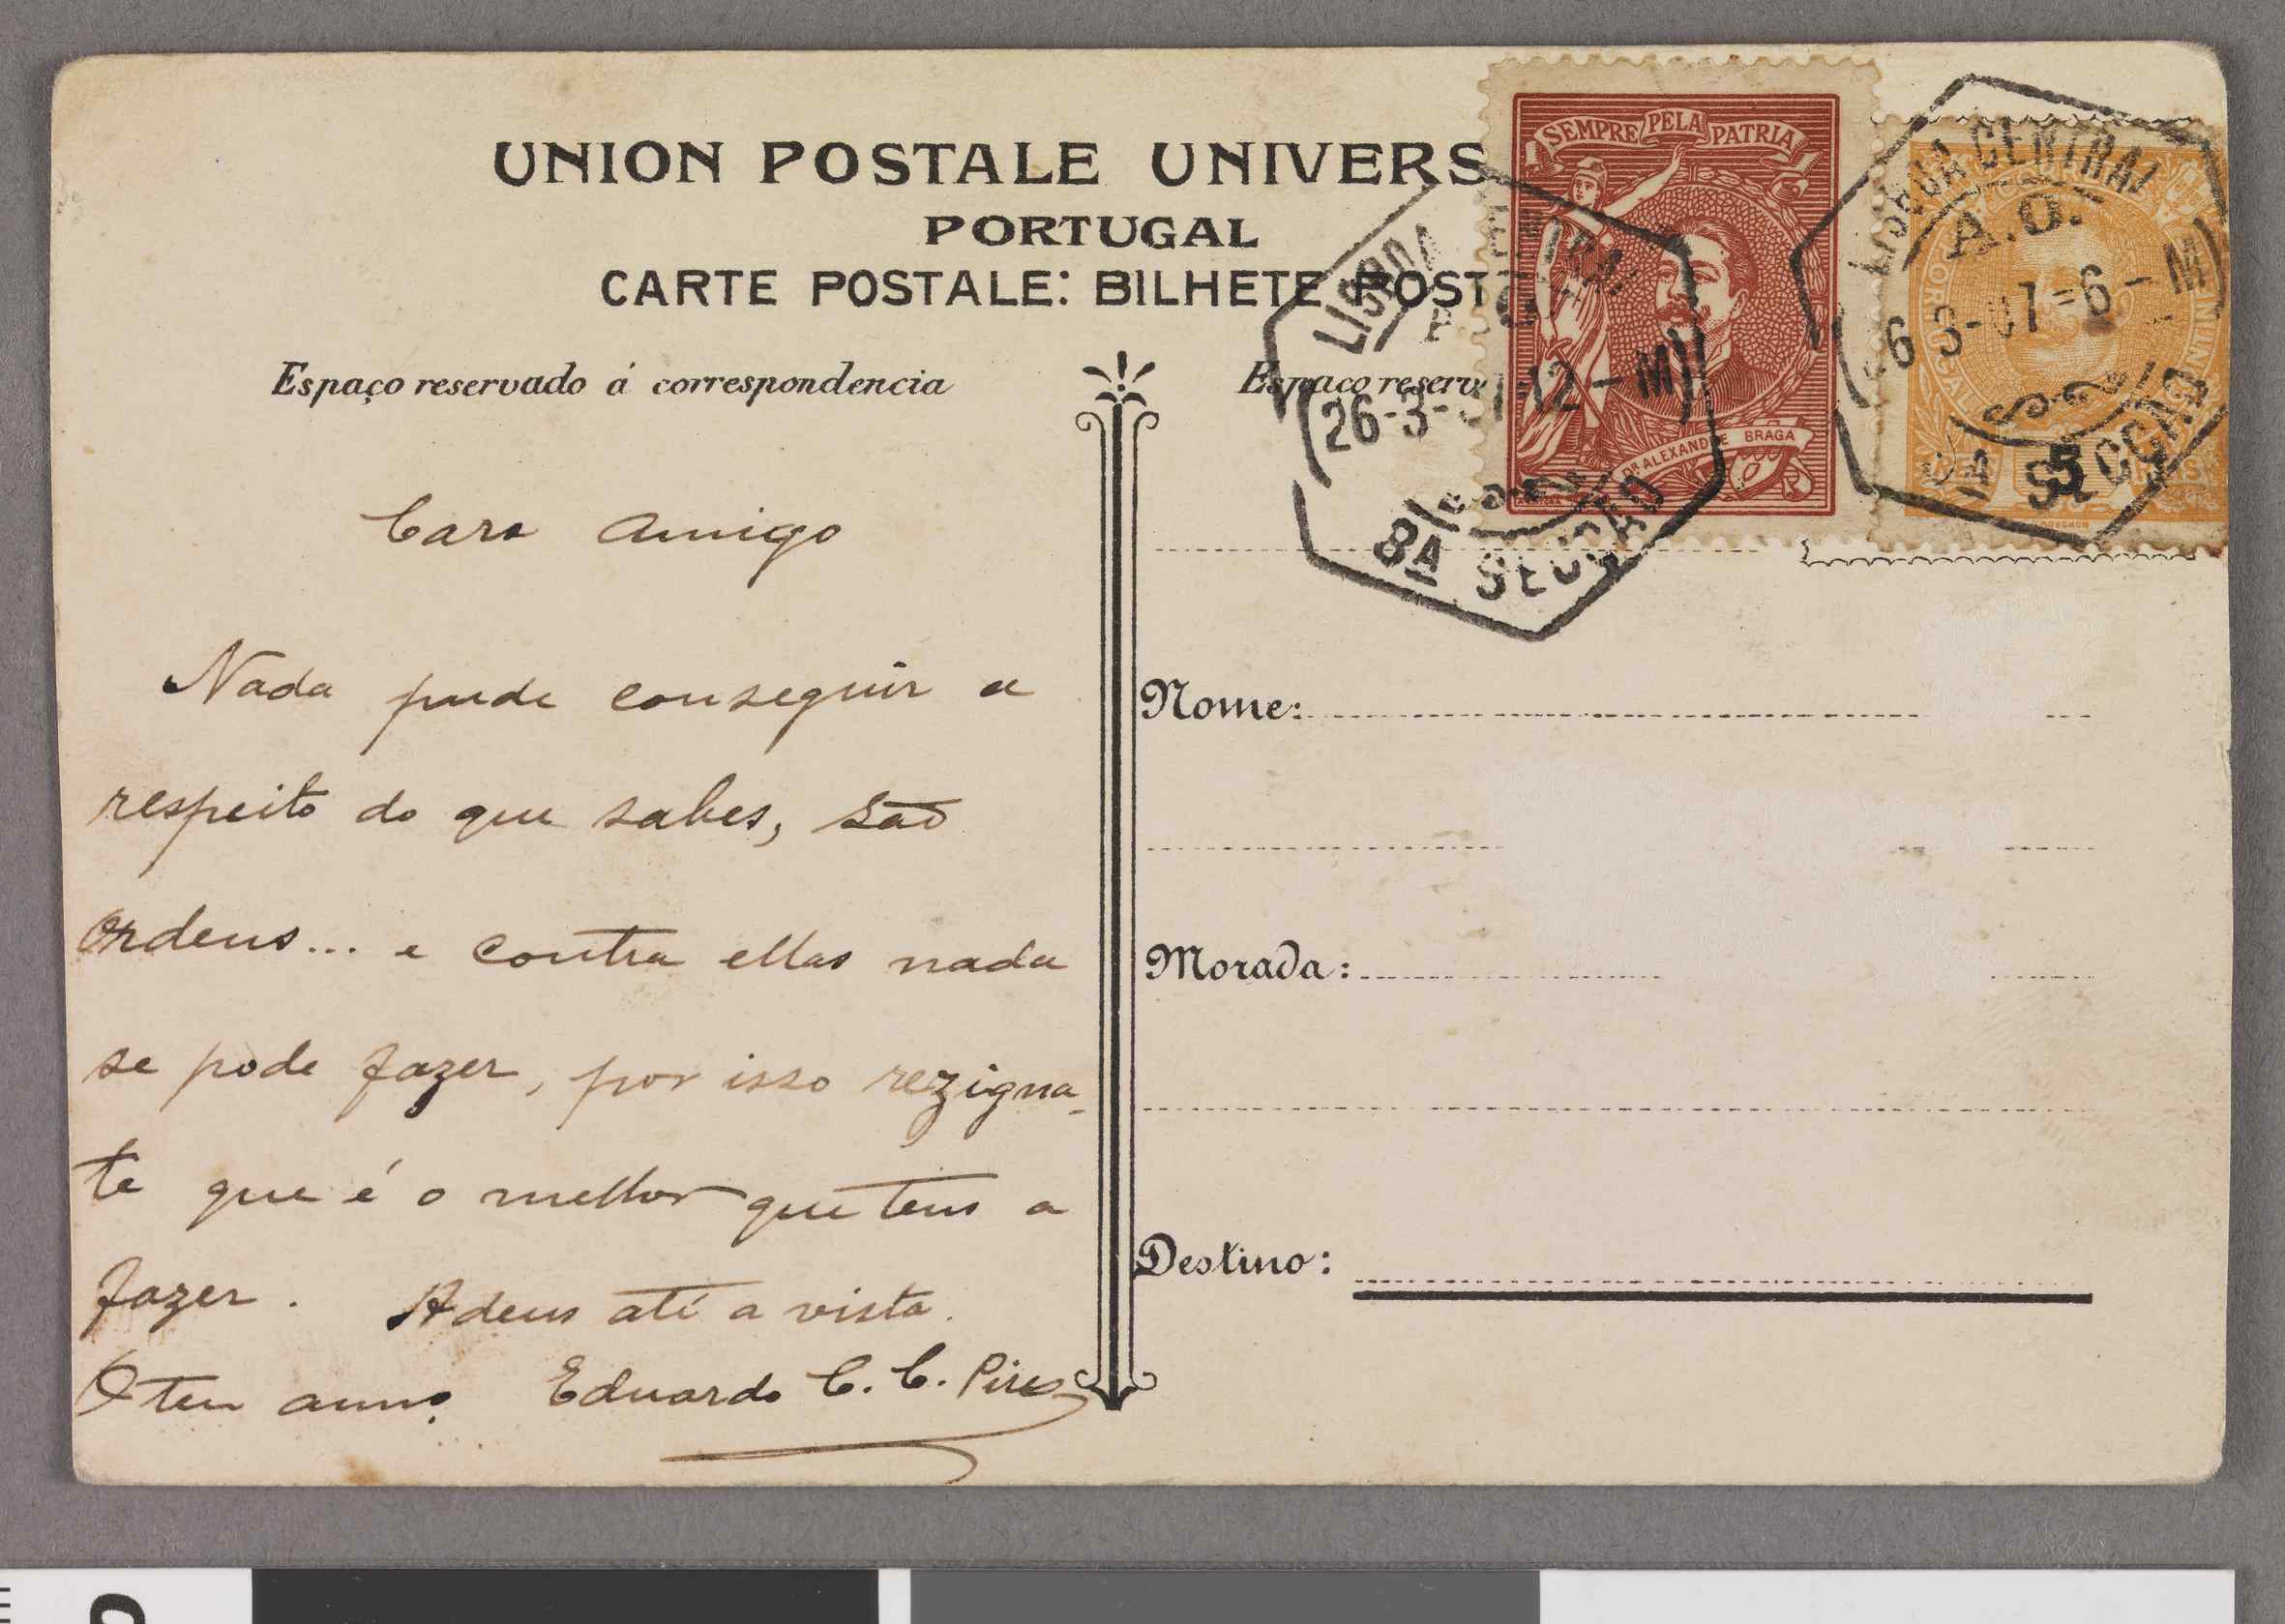 UNION POSTALE UNIVERS
PORTUGAL
CARTE POSTALE: BILHETE POST
Espaço reservado á correspondencia
Caro Amigo
Nada pude conseguir a
respeito do que sabes, são
ordens... e contra ellas nada
se pode fazer, por isso rezigna-
te que é o melhor que tens a
fazer. Adeus até a vista.
O teu amo. Eduardo C. C. Pires
Espaço reserv
SEMPRE PELA PATRIA
DR ALEXANDRE BRAGA
LISBOA CENTRAL
26-3-07 12-M
8A SECÇÃO
LISBOA CENTRAL
A.O.
26 3-07=6-M
SECÇÃO
5
Nome:
Morada:
Destino: